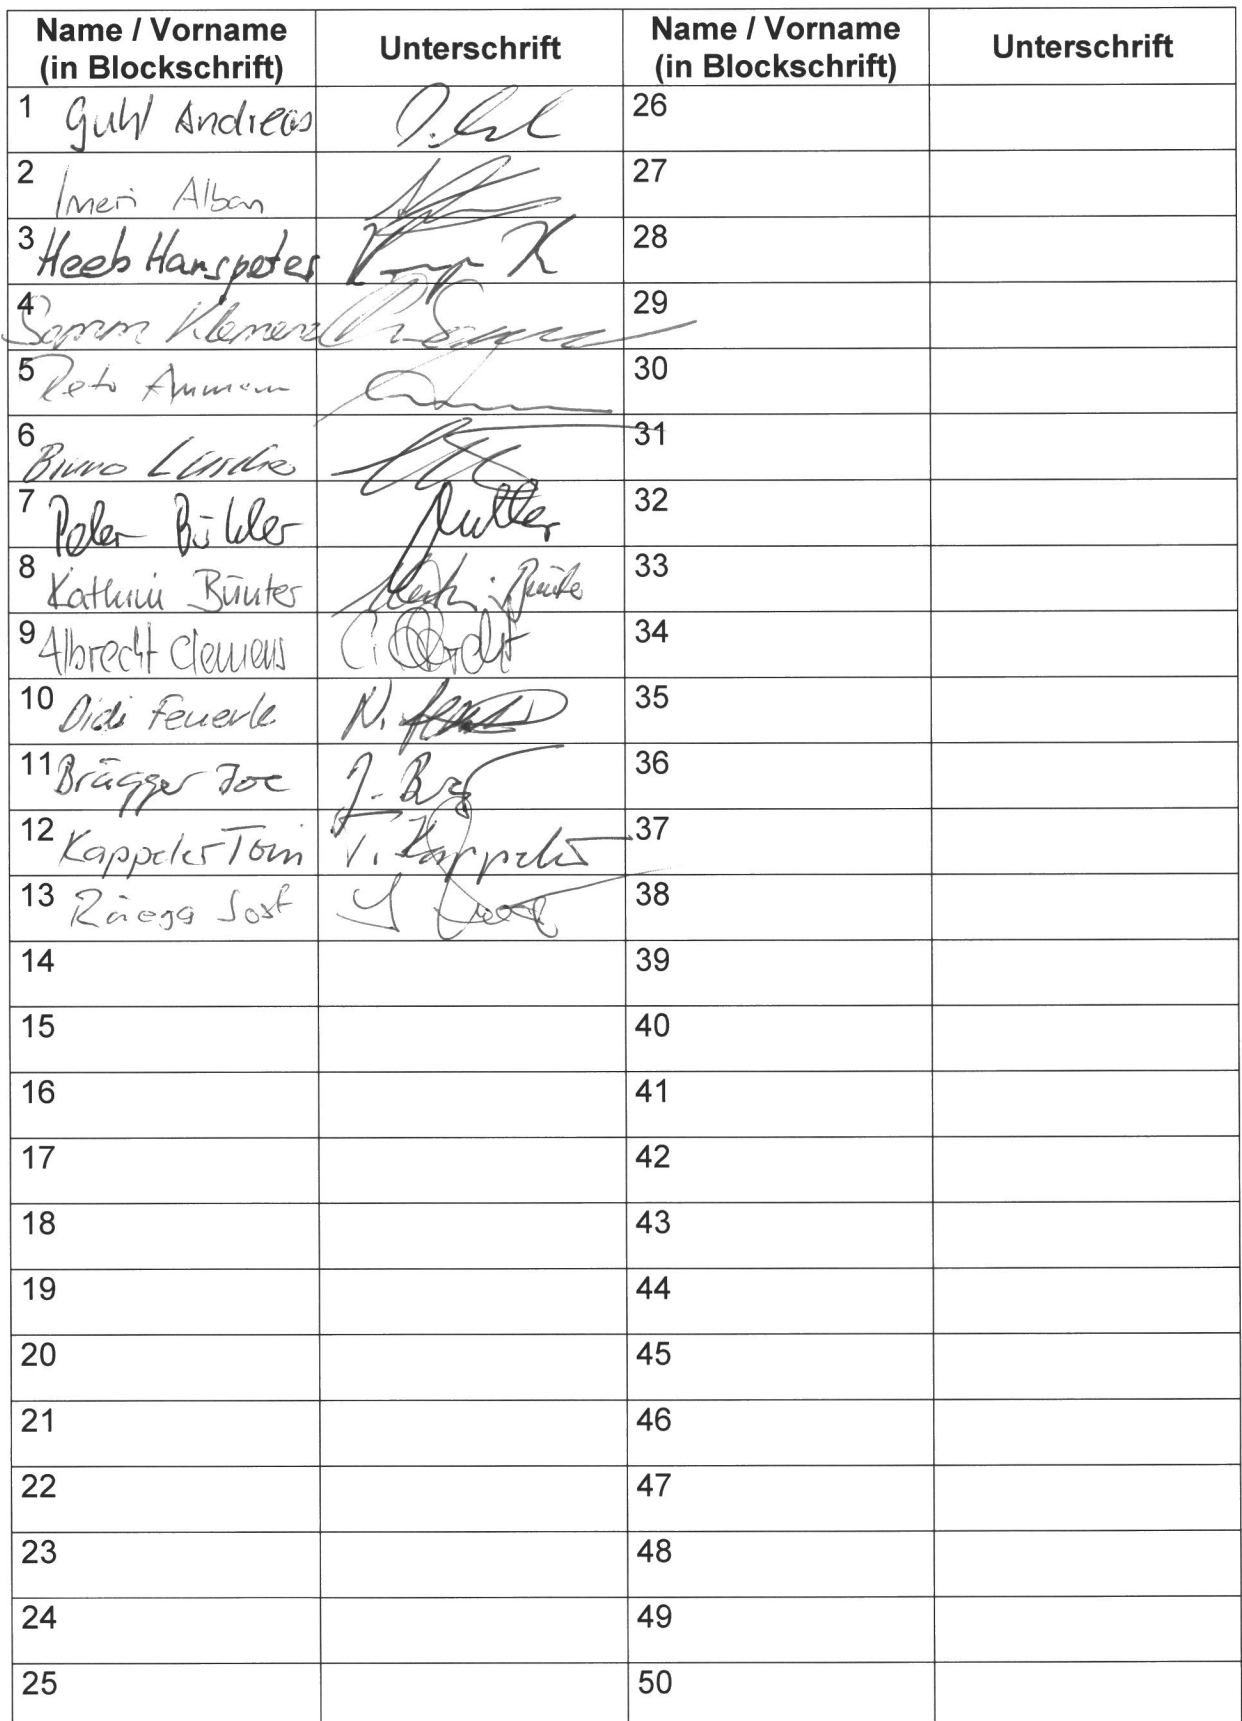 Name / Vorname (in Blockschrift) Unterschrift Name / Vorname (in Blockschrift) Unterschrift
1 Guhl Andreas 26
2 Imeri Alban 27
3 Heeb Hanspeter 28
4 Somm Klemenz 29
5 Reto Ammann 30
6 Bruno Lüscher 31
7 Peter Bühler 32
8 Kathrin Bünter K. Bünter 33
9 Albrecht Clemens C. Albrecht 34
10 Didi Feuerle 35
11 Brägger Joe J. 36
12 Kappeler Toni T. Kappeler 37
13 Rüegg Jost 38
14 39
15 40
16 41
17 42
18 43
19 44
20 45
21 46
22 47
23 48
24 49
25 50